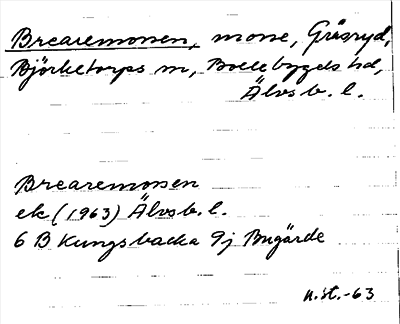 Brearemossen, mosse, Gråsryd,
Björketorps sn, Bollebygds hd,
Älvsb. l.
Brearemossen
ek (1963) Älvsb. l.
6 B Kungsbacka 9j Bugärde
n. st. -63